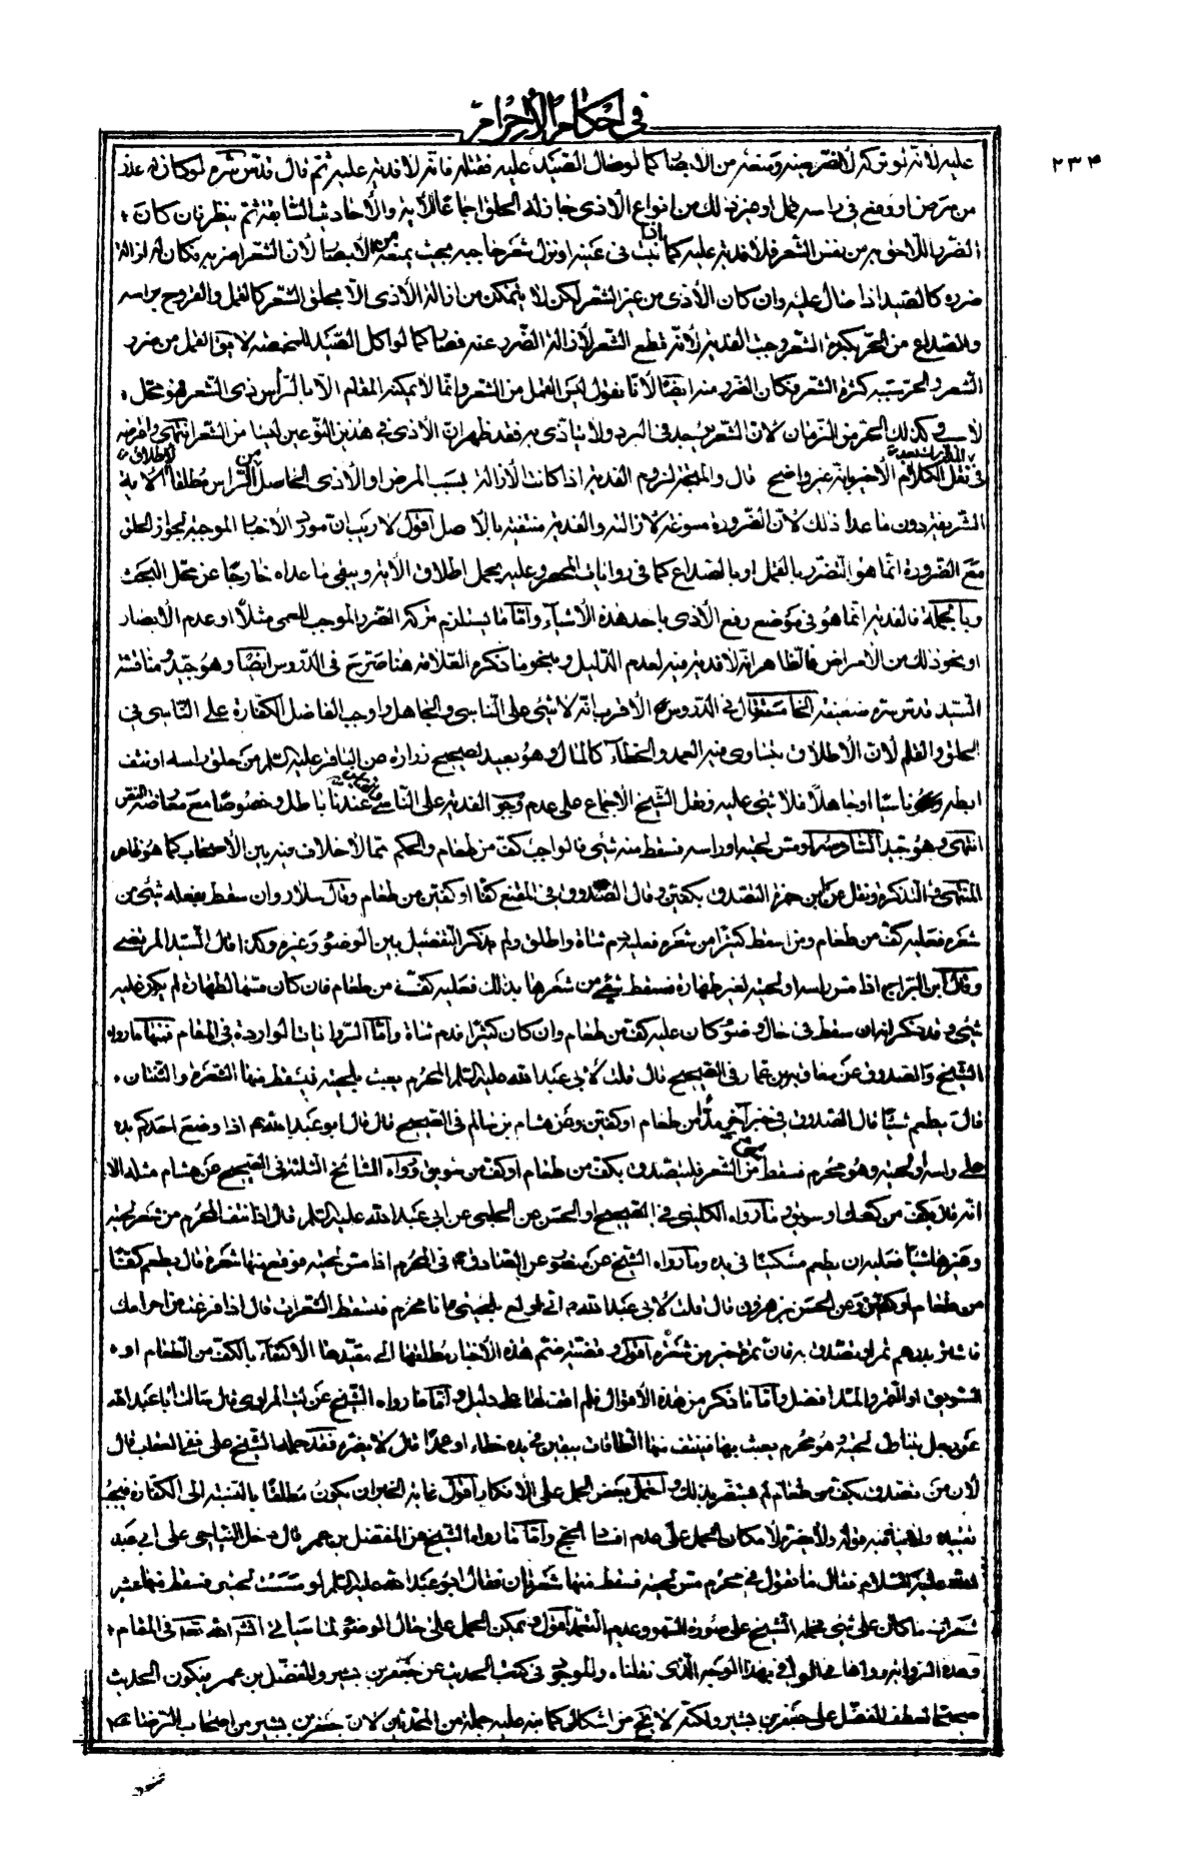 في احكام الاحرام
٢٣٤
عليه لانّه لو تركه لأضرّ بعينه ومنعه من الابصار كما لو صال الصّيد عليه فقتله فانّه لا فدية عليه ثمّ قال قدّس سرّه لو كان له عذر
من مرض او وقع في راسه قمل او غير ذلك من انواع الأذى جاز له الحلق اجماعًا للآية والأحاديث السّابقة ثمّ ينظر فان كان
الضّرر اللّاحق به من نفس الشّعر فلا فدية عليه كما اذا نبت في عينه او نزل شعر حاجبه بحيث يمنعه من الابصار لانّ الشّعر اضرّ به فكان له ازالة
ضرره كالصّيد اذا صال عليه وان كان الأذى من غير الشّعر لكن لا يتمكّن من ازالة الأذى الّا بحلق الشّعر كالقمل والقروح براسه
والصّداع من الحرّ بكثرة الشّعر وجبت الفدية لانّه قطع الشّعر لازالة الضّرر عنه فصار كما لو اكل الصّيد للمخمصة لا يق القمل من ضرر
الشّعر والحرّ سببه كثرة الشّعر فكان الضّرر منه ايضًا لانّا نقول ليس القمل من الشّعر وانّما لا يمكنه المقام الّا بالرّأس ذي الشّعر فهو محلّ
لا سبب وكذلك الحرّ من الزّمان لانّ الشّعر يوجد في البرد ولا يتاذّى به فقد ظهر انّ الأذى في هذين النّوعين ليسا من الشّعر انتهى واعترضه
في المدارك بعد نقل الكلام الأخير بانّه غير واضح قال والمتّجه لزوم الفدية اذا كانت الأزالة بسبب المرض او الأذى الحاصل من الرّاس مطلقًا لاطلاق الآية
الشّريفة دون ما عدا ذلك لانّ الضّرورة مسوّغة لازالته والفدية منتفية بالأصل اقول لا ريب ان مورد الأخبار الموجبة لجواز الحلق
مع الضّرورة انّما هو التّضرّر بالقمل او بالصّداع كما في روايات المحصر وعليه يحمل اطلاق الآية ويبقى ما عداه خارجًا عن محلّ البحث
وبالجملة فالفدية انّما هو في موضع رفع الأذى باحد هذه الأشياء وامّا ما يستلزم تركه الضّرر الموجب للعمى مثلًا او عدم الأبصار
او نحو ذلك من الأمراض فالظّاهر انّه لا فدية فيه لعدم الدّليل وبنحو ما ذكره العلّامة هنا صرّح في الدّروس ايضًا وهو جيّد ومناقشة
السّيد قدّس سرّه ضعيفة الخامسة قال في الدّروس الأقرب انّه لا شيء على النّاسي والجاهل واوجب الفاضل الكفّارة على النّاسي في
الحلق والقلم لانّ الاطلاق يتساوى فيه العمد والخطأ كالمال وهو بعيد لصحيح زرارة عن الباقر عليه السّلم من حلق راسه او نتف
ابطه ناسيًا او جاهلًا فلا شيء عليه ونقل الشّيخ الاجماع على عدم وجوب الفدية على النّاسي عندنا باطل وخصوصًا مع معارضة النّص
انتهى وهو جيّد السّادسة لو مسّ لحيته او راسه فسقط منه شيء فالواجب كفّ من طعام والحكم ممّا لا خلاف فيه بين الأصحاب كما هو ظاهر
المنتهى والتّذكرة ونقل عن ابن حمزة التّصدّق بكفّين وقال الصّدوق في المقنع كفًّا او كفّين من طعام وقال سلّار وان سقط بفعله شيء من
شعره فعليه كفّ من طعام ومن اسقط كثيرًا من شعره فعليه دم شاة واطلق ولم يذكر التّفصيل بين الوضوء وغيره وكذا قال السّيّد المرتضى
وقال ابن البرّاج اذا مسّ راسه او لحيته لغير طهارة فسقط شيء من شعرها بذلك فعليه كفّ من طعام فان كان مسّها لطهارة لم يكن عليه
شيء وقد ذكر انه ان سقط في حال وضوء كان عليه كفّ من طعام وان كان كثيرًا فدم شاة وامّا الرّوايات الواردة في المقام فمنها ما رواه
الشّيخ والصّدوق عن معاوية بن عمّار في الصّحيح قال قلت لأبي عبد الله عليه السّلم المحرم يعبث بلحيته فيسقط منها الشّعرة والثّنتان
قال يطعم شيئًا قال الصّدوق في خبر آخر مدًّا من طعام او كفّين وعن هشام بن سالم في الصّحيح قال قال ابو عبد الله ع اذا وضع احدكم يده
على راسه او لحيته وهو محرم فسقط شيء من الشّعر فليتصدّق بكفّ من طعام او كفّ من سويق ورواه المشائخ الثّلثة في الصّحيح عن هشام مثله الا
انّه قال بكفّ من كعك او سويق وما رواه الكليني في الصّحيح او الحسن عن الحلبي عن ابي عبد الله عليه السّلم قال اذا نتف المحرم من شعر لحيته
وغيرها شيئًا فعليه ان يطعم مسكينًا في يده وما رواه الشّيخ عن منصور عن الصّادق ع في المحرم اذا مسّ لحيته فوقع منها شعرة قال يطعم كفًّا
من طعام او كفّين وعن الحسن بن هرون قال قلت لأبي عبد الله ع انّي اولع بلحيتي وانا محرم فتسقط الشّعرات قال اذا فرغت من احرامك
فاشتر بدرهم تمرًا وتصدّق به فانّ تمرة خير من شعرة اقول وقضيّة ضمّ هذه الأخبار مطلقها الى مقيّدها الأكتفاء بالكفّ من الطّعام او
السّويق او التّمر والمدّ افضل وامّا ما ذكر من هذه الأقوال فلم اقف لها على دليل وامّا ما رواه الشّيخ عن ليث المرادي قال سالت ابا عبد الله
عن رجل يتناول لحيته وهو محرم يعبث بها فينتف منها الطّاقات يبقين في يده خطاء او عمدًا قال لا يضرّه فقد حمله الشّيخ على نفي العقاب قال
لأن من تصدّق بكفّ من طعام لم يستضرّ بذلك واحتمل بعض الحمل على الانكار اقول غاية الخبر ان يكون مطلقًا بالنّسبة الى الكفّارة فيجب
تقييده ولا ينافيه قوله ولا يضرّه لامكان الحمل على عدم افساد الحجّ وامّا ما رواه الشّيخ عن المفضّل بن عمر قال دخل النباجي على ابي عبد
الله عليه السّلام فقال ما تقول في محرم مسّ لحيته فسقط منها شعرتان فقال ابو عبد الله عليه السّلم لو مسست لحيتي فسقط منها عشر
شعرات ما كان عليّ شيء فحمله الشّيخ على صورة السّهو وعدم التّعمّد اقول ويمكن الحمل على حال الوضوء لما سياتي انشاء الله تعه في المقام
وهذه الرّواية رواها في الوافي بهذا الوجه الّذي نقلناه والموجود في كتب الحديث عن جعفر بن بشير والمفضّل بن عمر فيكون الحديث
صحيحًا لعطف المفضّل على جعفر بن بشير ولكنّه لا يخ من اشكال كما نبه عليه جملة من المحدّثين لانّ جعفر بن بشير من اصحاب الرّضا ع